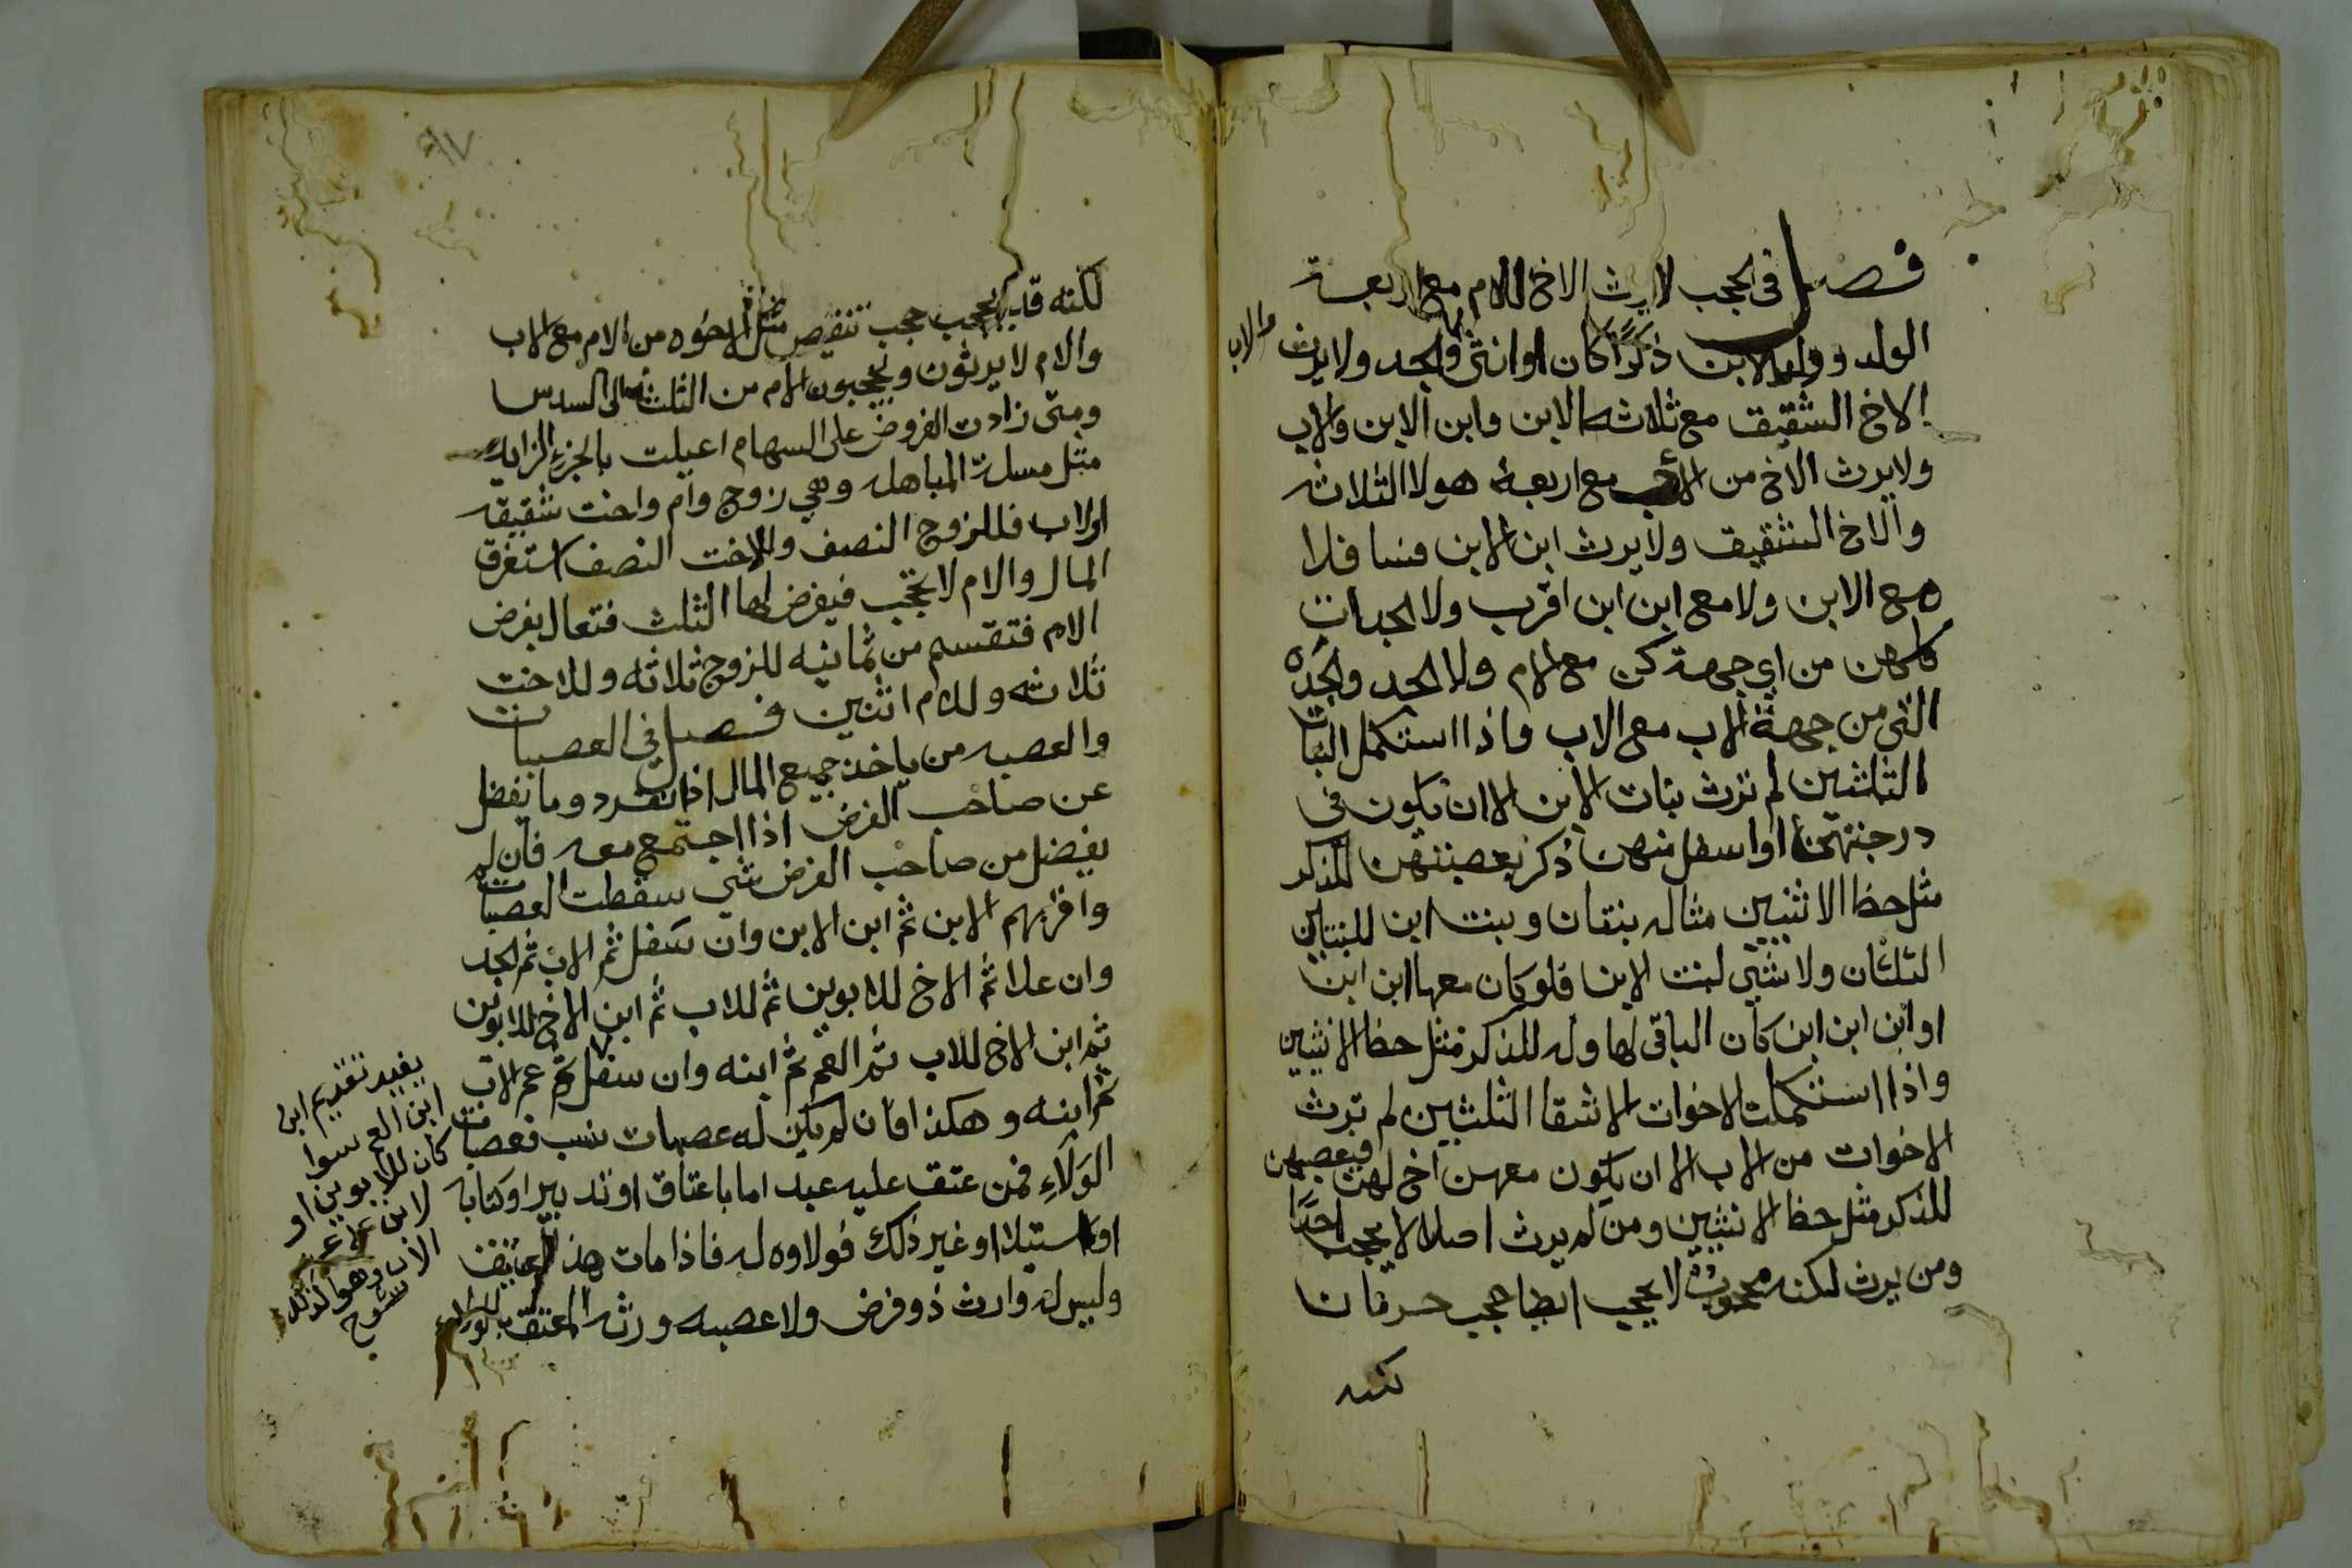 فصل في الحجب لا يرث الاخ للام مع اربعة
الولد وولد الابن ذكرا كان او انثى والجد ولا يرث
والاب
الاخ الشقيق مع ثلاثه الابن وابن الابن والاب
ولا يرث الاخ من الاب مع اربعة هولا الثلاثه
والاخ الشقيق ولا يرث ابن الابن فسافلا
مع الابن ولا مع ابن ابن اقرب ولا الجدات
كلهن من اي جهة كن مع الام ولا الجد والجده
التي من جهة الاب مع الاب واذا استكمل البنات
الثلثين لم ترث بنات الابن الا ان يكون في
درجتهن او اسفل منهن ذكر يعصبهن للذكر
مثل حظ الانثيين مثاله بنتان وبنت ابن للبنتين
الثلثان ولا شي لبنت الابن فلو كان معها ابن ابن
او ابن ابن ابن كان الباقي لها وله للذكر مثل حظ الانثيين
واذا استكملت الاخوات الاشقا الثلثين لم ترث
الاخوات من الاب الا ان يكون معهن اخ لهن فيعصبهن
للذكر مثل حظ الانثيين ومن لم يرث اصلا لا يحجب احدا
ومن يرث لكنه محجوب لا يحجب ايضا حجب حرمان
لكنه
٩٧
لكنه قد يحجب حجب تنقيص مثل الاخوه من الام مع الاب
والام لا يرثون ويحجبون الام من الثلث الى السدس
ومتى زادت الفروض على السهام اعيلت بالجزء الزايد
مثل مسلة المباهله وهي زوج وام واخت شقيقه
او لاب فللزوج النصف وللاخت النصف استغرق
المال والام لا تحجب فيفرض لها الثلث فتعال بفرض
الام فتقسم من ثمانيه للزوج ثلاثه وللاخت
ثلاثه وللام اثنين فصل في العصبات
والعصبه من ياخذ جميع المال اذا انفرد وما يفضل
عن صاحب الفرض اذا اجتمع معه فان لم
يفضل من صاحب الفرض شي سقطت العصبات
واقربهم الابن ثم ابن الابن وان سفل ثم الاب ثم الجد
وان علا ثم الاخ للابوين ثم للاب ثم ابن الاخ للابوين
ثم ابن الاخ للاب ثم العم ثم ابنه وان سفل ثم عم الاب
ثم ابنه وهكذا فان لم يكن له عصبات نسب فعصبات
الولاء فمن عتق عليه عبد اما باعتاق او تدبير او كتابه
او استيلا او غير ذلك فولاوه له فاذا مات هذا العتيق
وليس له وارث ذو فرض ولا عصبه ورثه المعتق بالولاء
يفيد تقديم ابن
ابن العم سوا
كان للابوين او
لاب على عم
الاب وهو كذلك